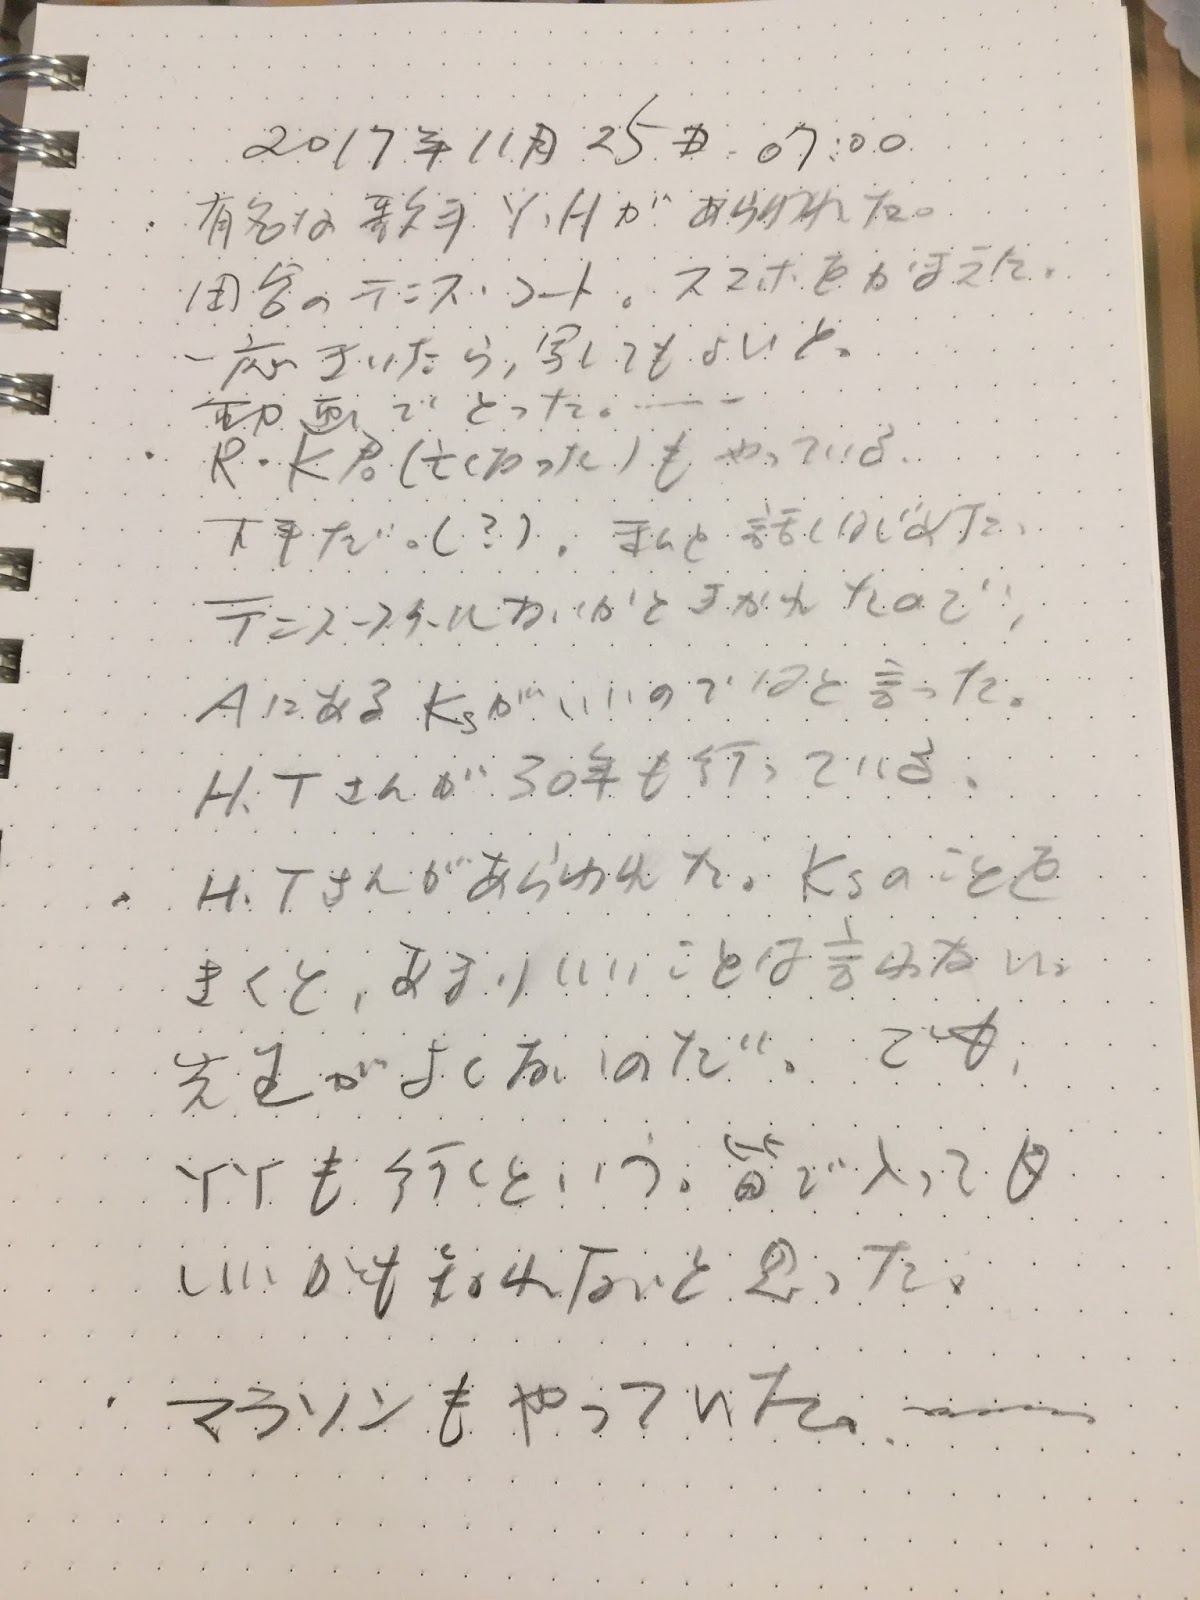 2017年11月25日 07:00
・有名な歌手Y.Hがあらわれた。
田舎のテニス・コート。スマホをかまえた。
一応きいたら，写してもよいと。
動画でとった。——
・R・K君(亡くなった)もやっている。
下手だ。(?)。 話しはじめた、
テニス・スクールがいいかときかれたので，
AにあるKsがいいのではと言った。
H.Tさんが30年も行っている。
・H.Tさんがあらわれた。Ksのことを
きくと，あまりいいことは言わない。
先生がよくないのだ。でも，
YYも行くという。昔で入っても
いいかも知れないと思った。
・マラソンもやっていた。——